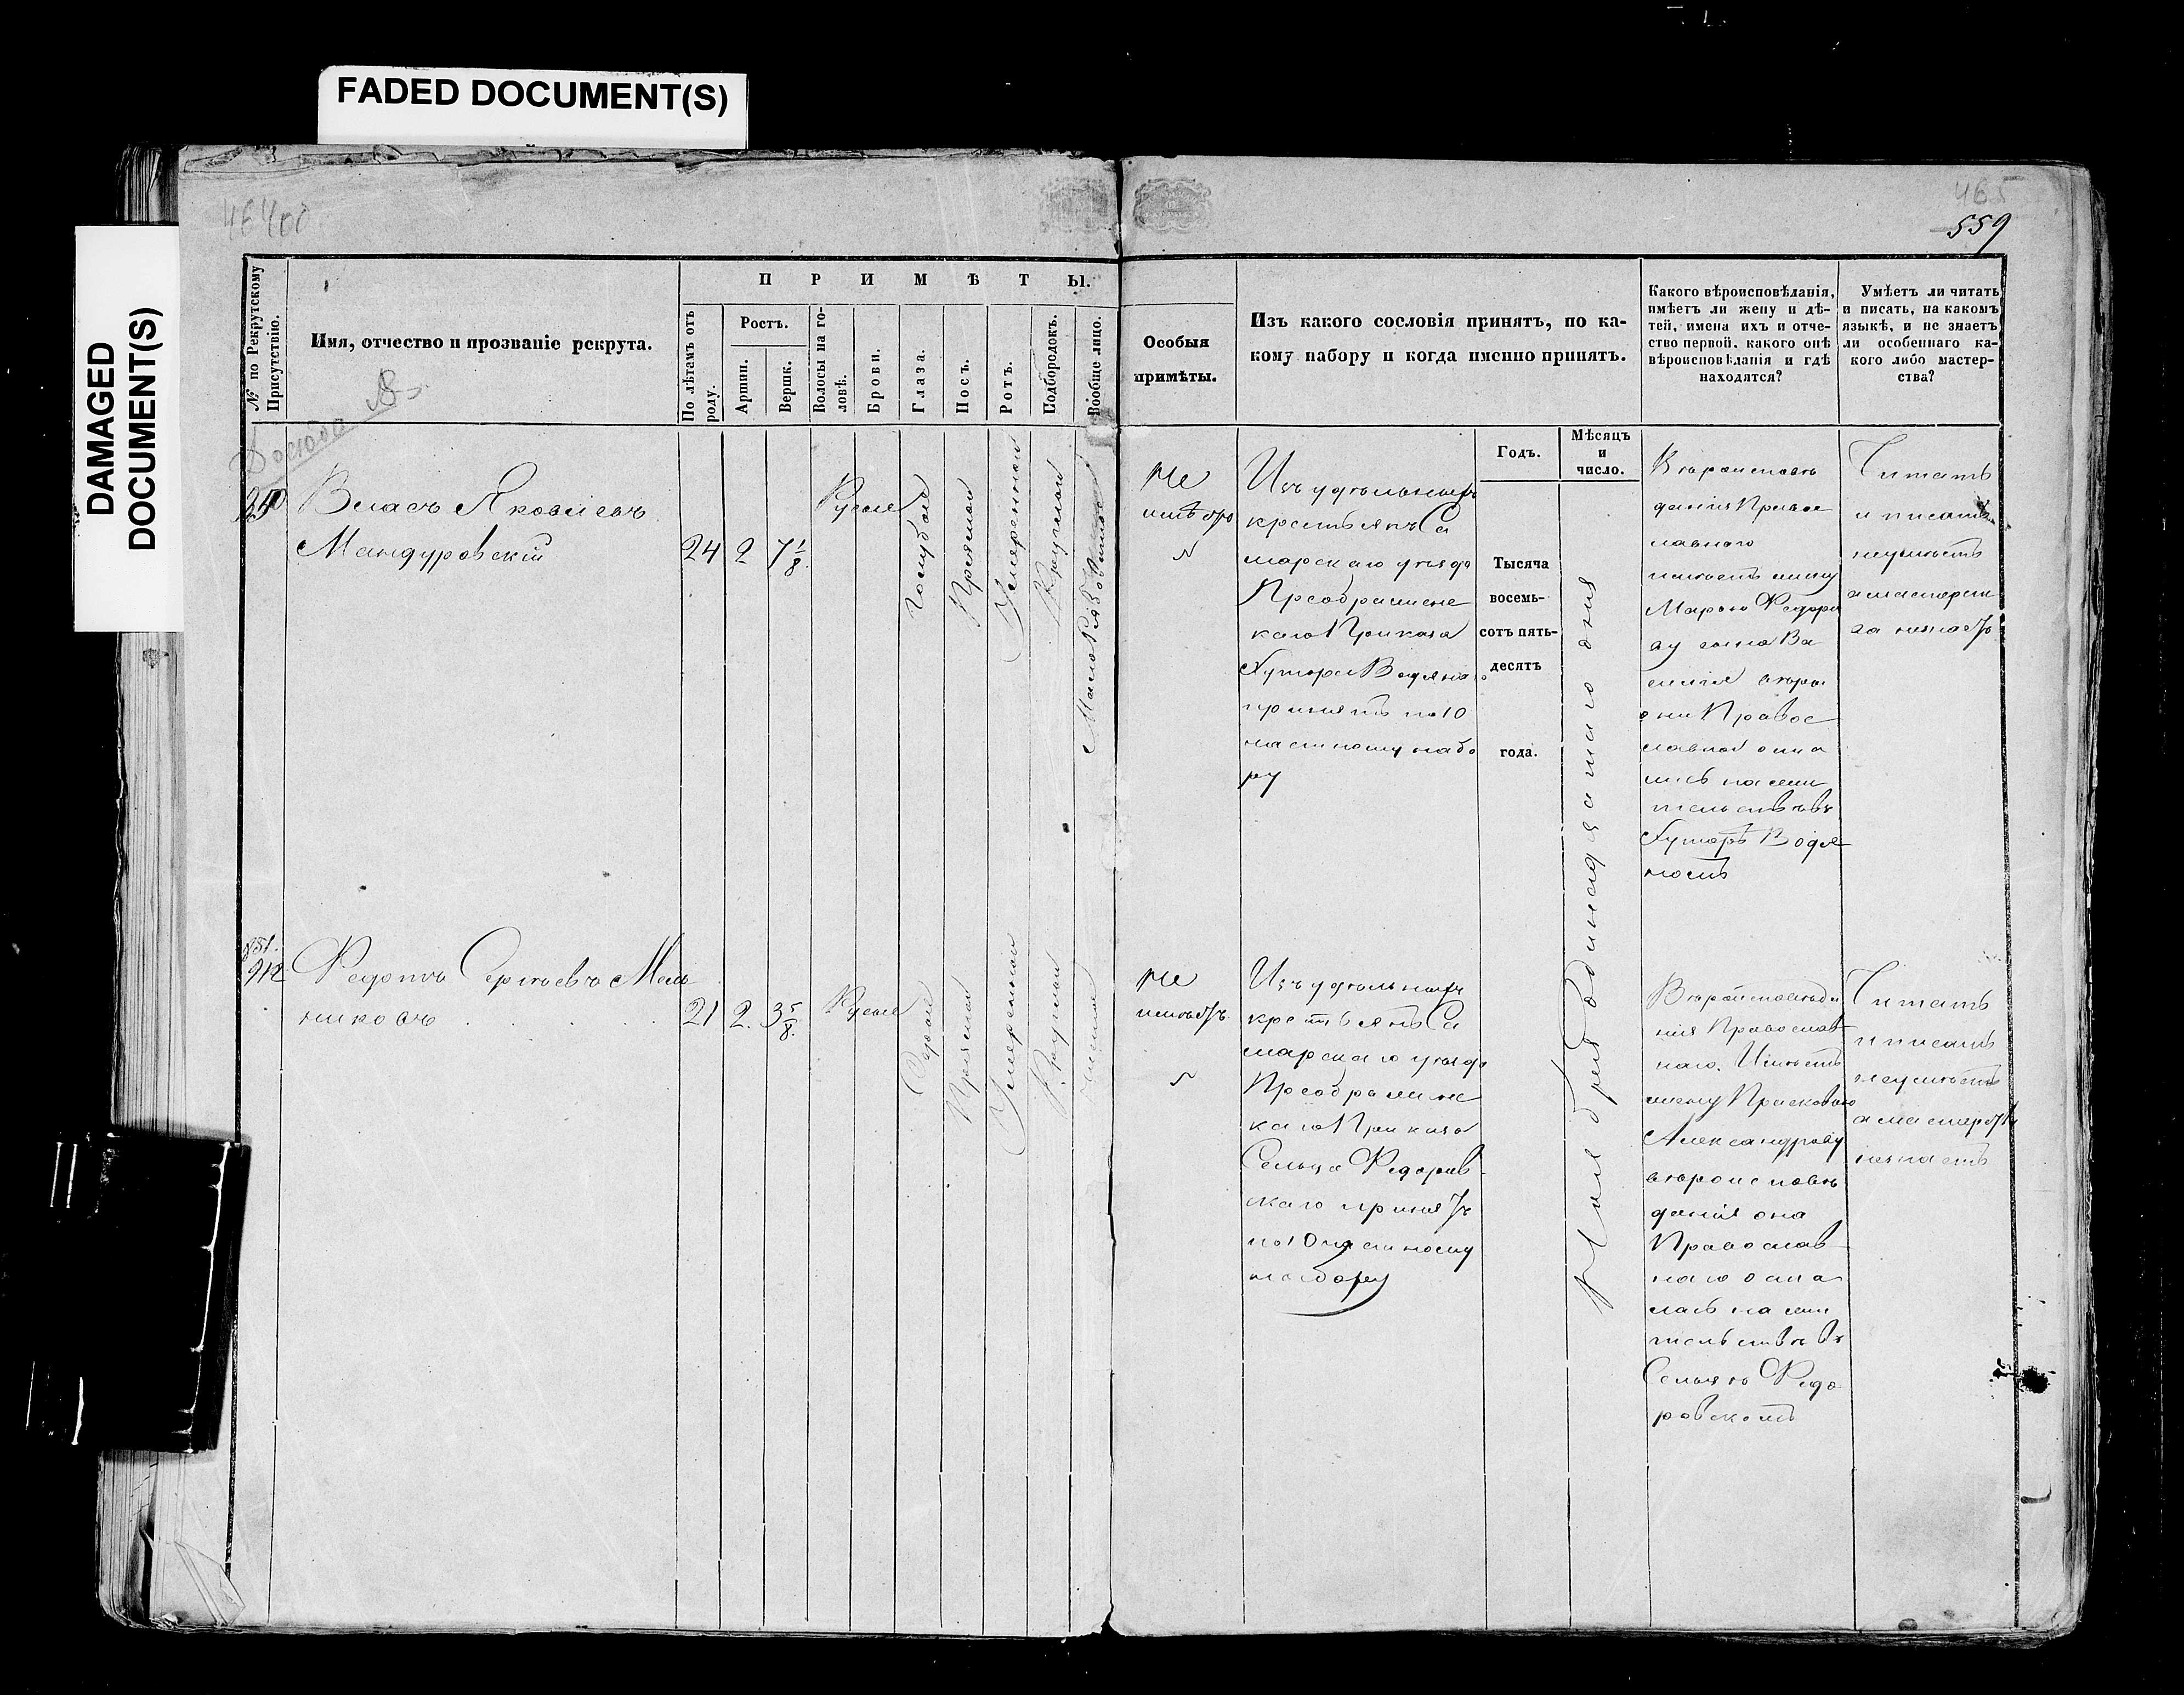 FADED DOCUMENT(S)
DAMAGED
DOCUMENT(S)
465
559
№ по Рекрутскому
Присутствію.
Имя, отчество и прозваніе рекрута.
ПРИМѢТЫ.
По лѣтамъ отъ
роду.
Ростъ.
Аршин.
Вершк.
Волосы на го-
ловѣ.
Брови.
Глаза.
Носъ.
Ротъ.
Подбородокъ.
Вообще лицо.
Особыя
примѣты.
Изъ какого сословія принятъ, по ка-
кому набору и когда именно принятъ.
Какого вѣроисповѣданія,
имѣетъ ли жену и дѣ-
тей, имена ихъ и отче-
ство первой, какого онѣ
вѣроисповѣданія и гдѣ
находятся?
Умѣетъ ли читать
и писать, на какомъ
языкѣ, и не знаетъ
ли особеннаго ка-
кого либо мастер-
ства?
Годъ.
Мѣсяцъ
и
число.
Тысяча
восемь-
сотъ пять-
десятъ
года.
Власъ Яковлевъ
Мандуровскій
24 2 7 1/8
Русые
Голубые
Прямой
Умеренной
Круглой
Не
имѣетъ
Изъ удѣльныхъ
крестьянъ Са
марского уѣзда
Преображенс
каго Приказа
Хутора Водяна
принятъ по 10
частному набо
ру
Ноября одинадцатаго дня
Вѣроисповѣ
данія Правос
лавного
имѣетъ жену
Марью Федоро
ву сына Ва
силія вѣрои
они Правос
лавной оста
лись на жи
тельствѣ въ
Хуторѣ Водя
номъ
Читать
и писать
неумѣетъ
а мастерст
ва незнаетъ
912
Федотъ Сергѣевъ Мель
никовъ
21 2. 3 5/8.
Русые
Серые
Прямой
Умеренной
Круглой
чистое
Не
имѣетъ
Изъ удѣльныхъ
крестьянъ Са
марскаго уѣзда
Преображенс
каго Приказа
Сельца Федоров
скаго принятъ
по 10 частному
набору
Вѣроисповѣда
нія Православ
наго. Имѣетъ
жену Прасковью
Александрову
вѣроисповѣ
данія она
Православ
наго оста
лась на жи
тельствѣ въ
Сельцѣ Федо
ровскомъ
Читать
и писать
неумѣетъ
а мастерств
незнаетъ